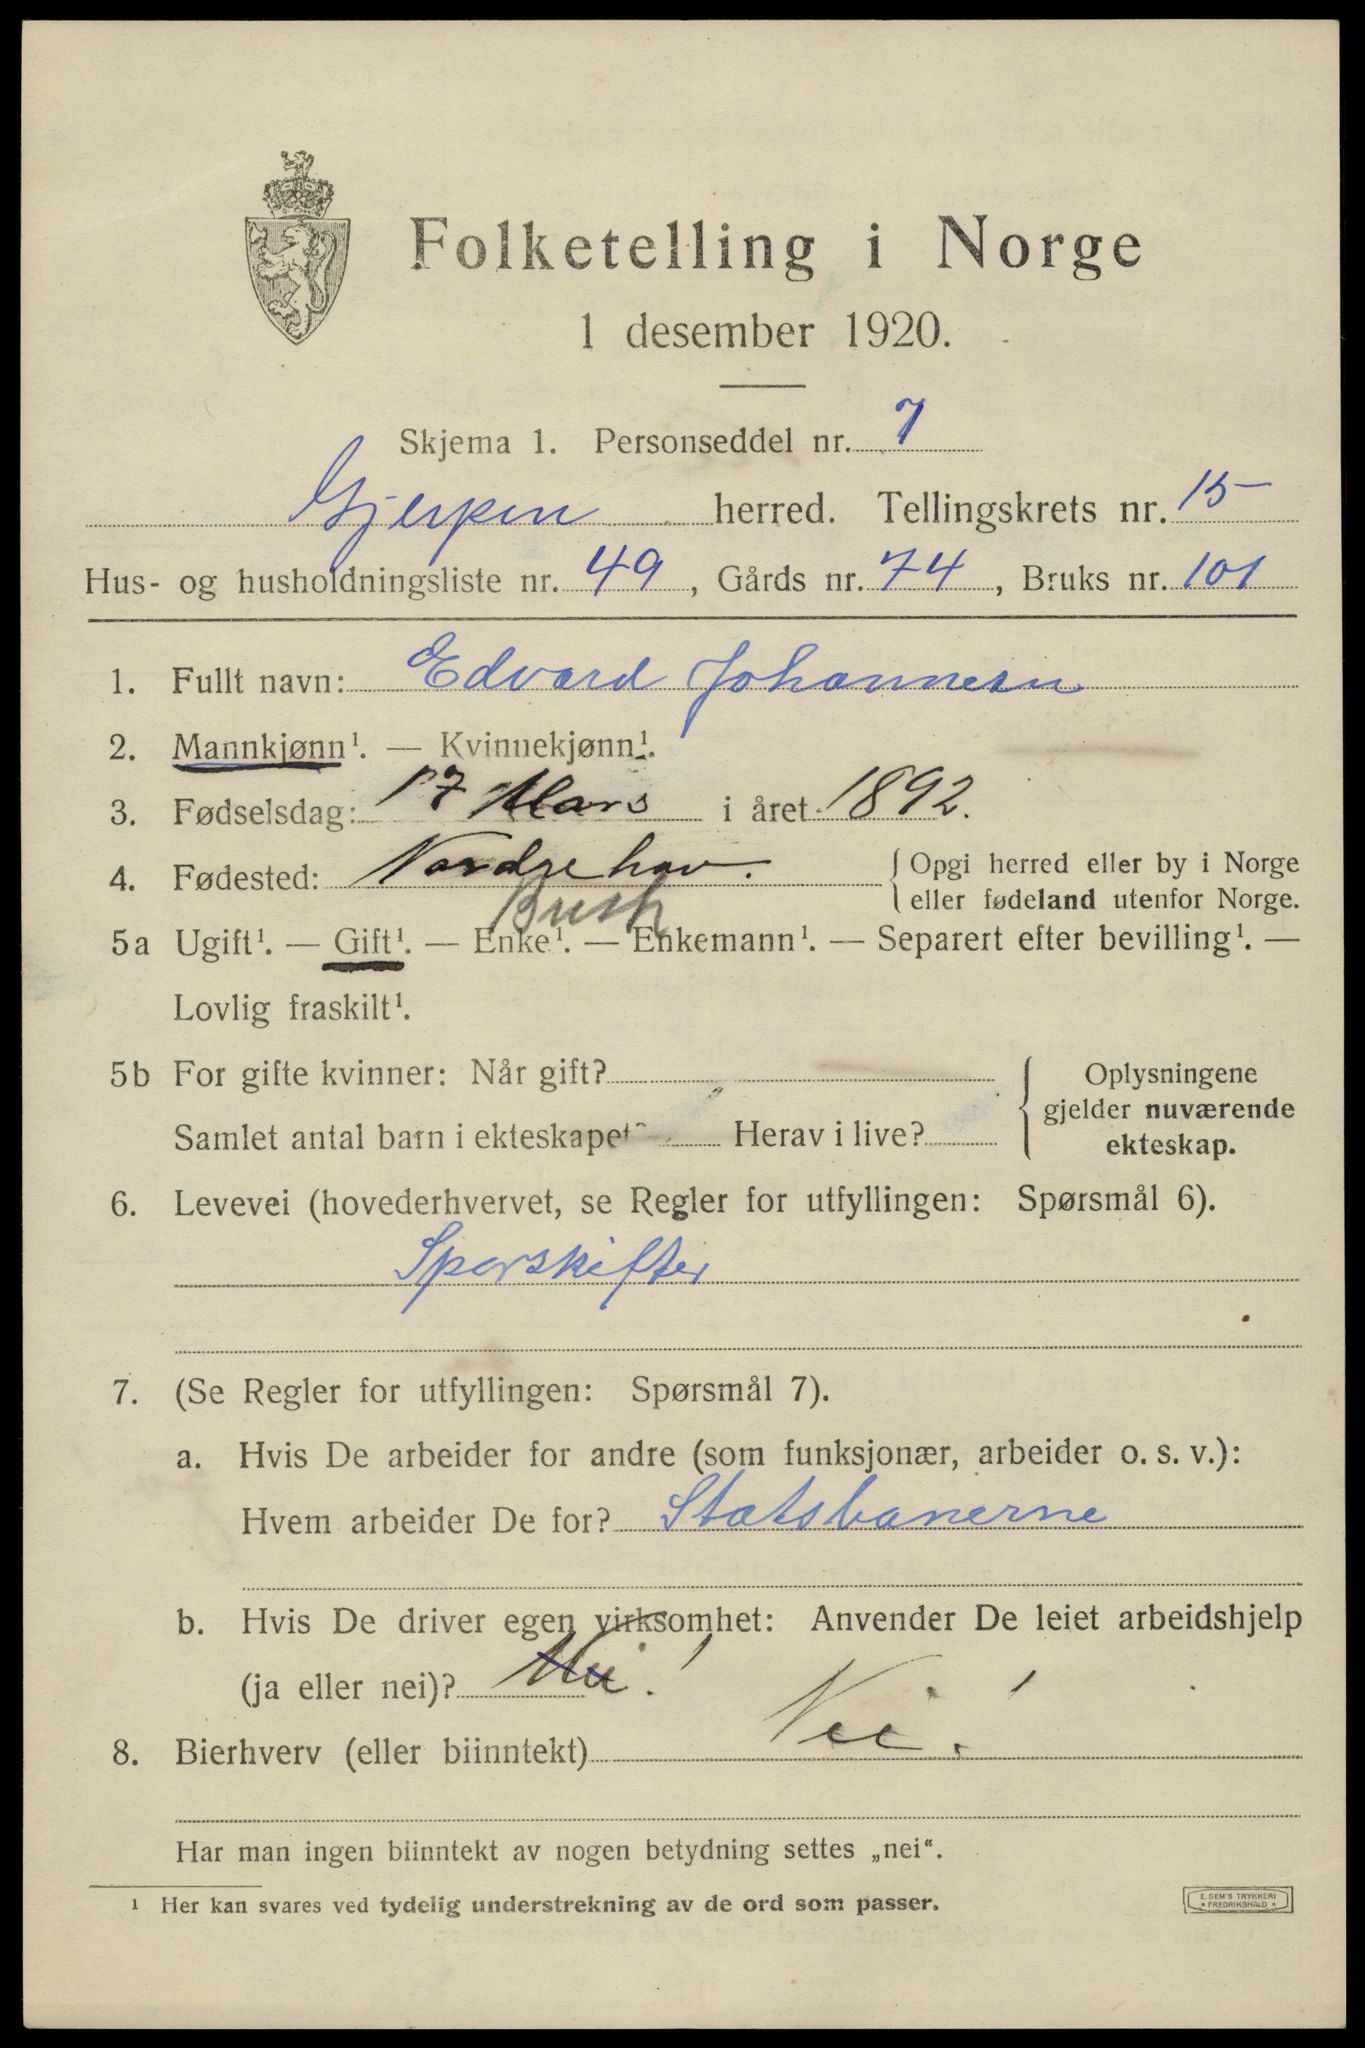 Folketelling i Norge
1 desember 1920.
Skjema 1. Personseddel nr. 7
Gjerpen herred. Tellingskrets nr. 15
Hus- og husholdningsliste nr. 49, Gårds nr. 74, Bruks nr. 101
1. Fullt navn: Edvard Johannesen
2. Mannkjønn¹. — Kvinnekjønn¹.
3. Fødselsdag: 17 Mars i året 1892.
4. Fødested: Nordrehov. { Opgi herred eller by i Norge
eller fødeland utenfor Norge.
Busk
5a Ugift¹. — Gift¹. — Enke¹. — Enkemann¹. — Separert efter bevilling¹. —
Lovlig fraskilt¹.
5b For gifte kvinner: Når gift?
Samlet antal barn i ekteskapet? Herav i live?
{ Oplysningene
gjelder nuværende
ekteskap.
6. Levevei (hovederhvervet, se Regler for utfyllingen: Spørsmål 6).
Sporskifter
7. (Se Regler for utfyllingen: Spørsmål 7).
a. Hvis De arbeider for andre (som funksjonær, arbeider o. s. v.):
Hvem arbeider De for? Statsbanerne
b. Hvis De driver egen virksomhet: Anvender De leiet arbeidshjelp
(ja eller nei)? Nei!
8. Bierhverv (eller biinntekt) Nei!
Har man ingen biinntekt av nogen betydning settes „nei“.
¹ Her kan svares ved tydelig understrekning av de ord som passer.
E. SEM'S TRYKKERI
* FREDRIKSHALD *